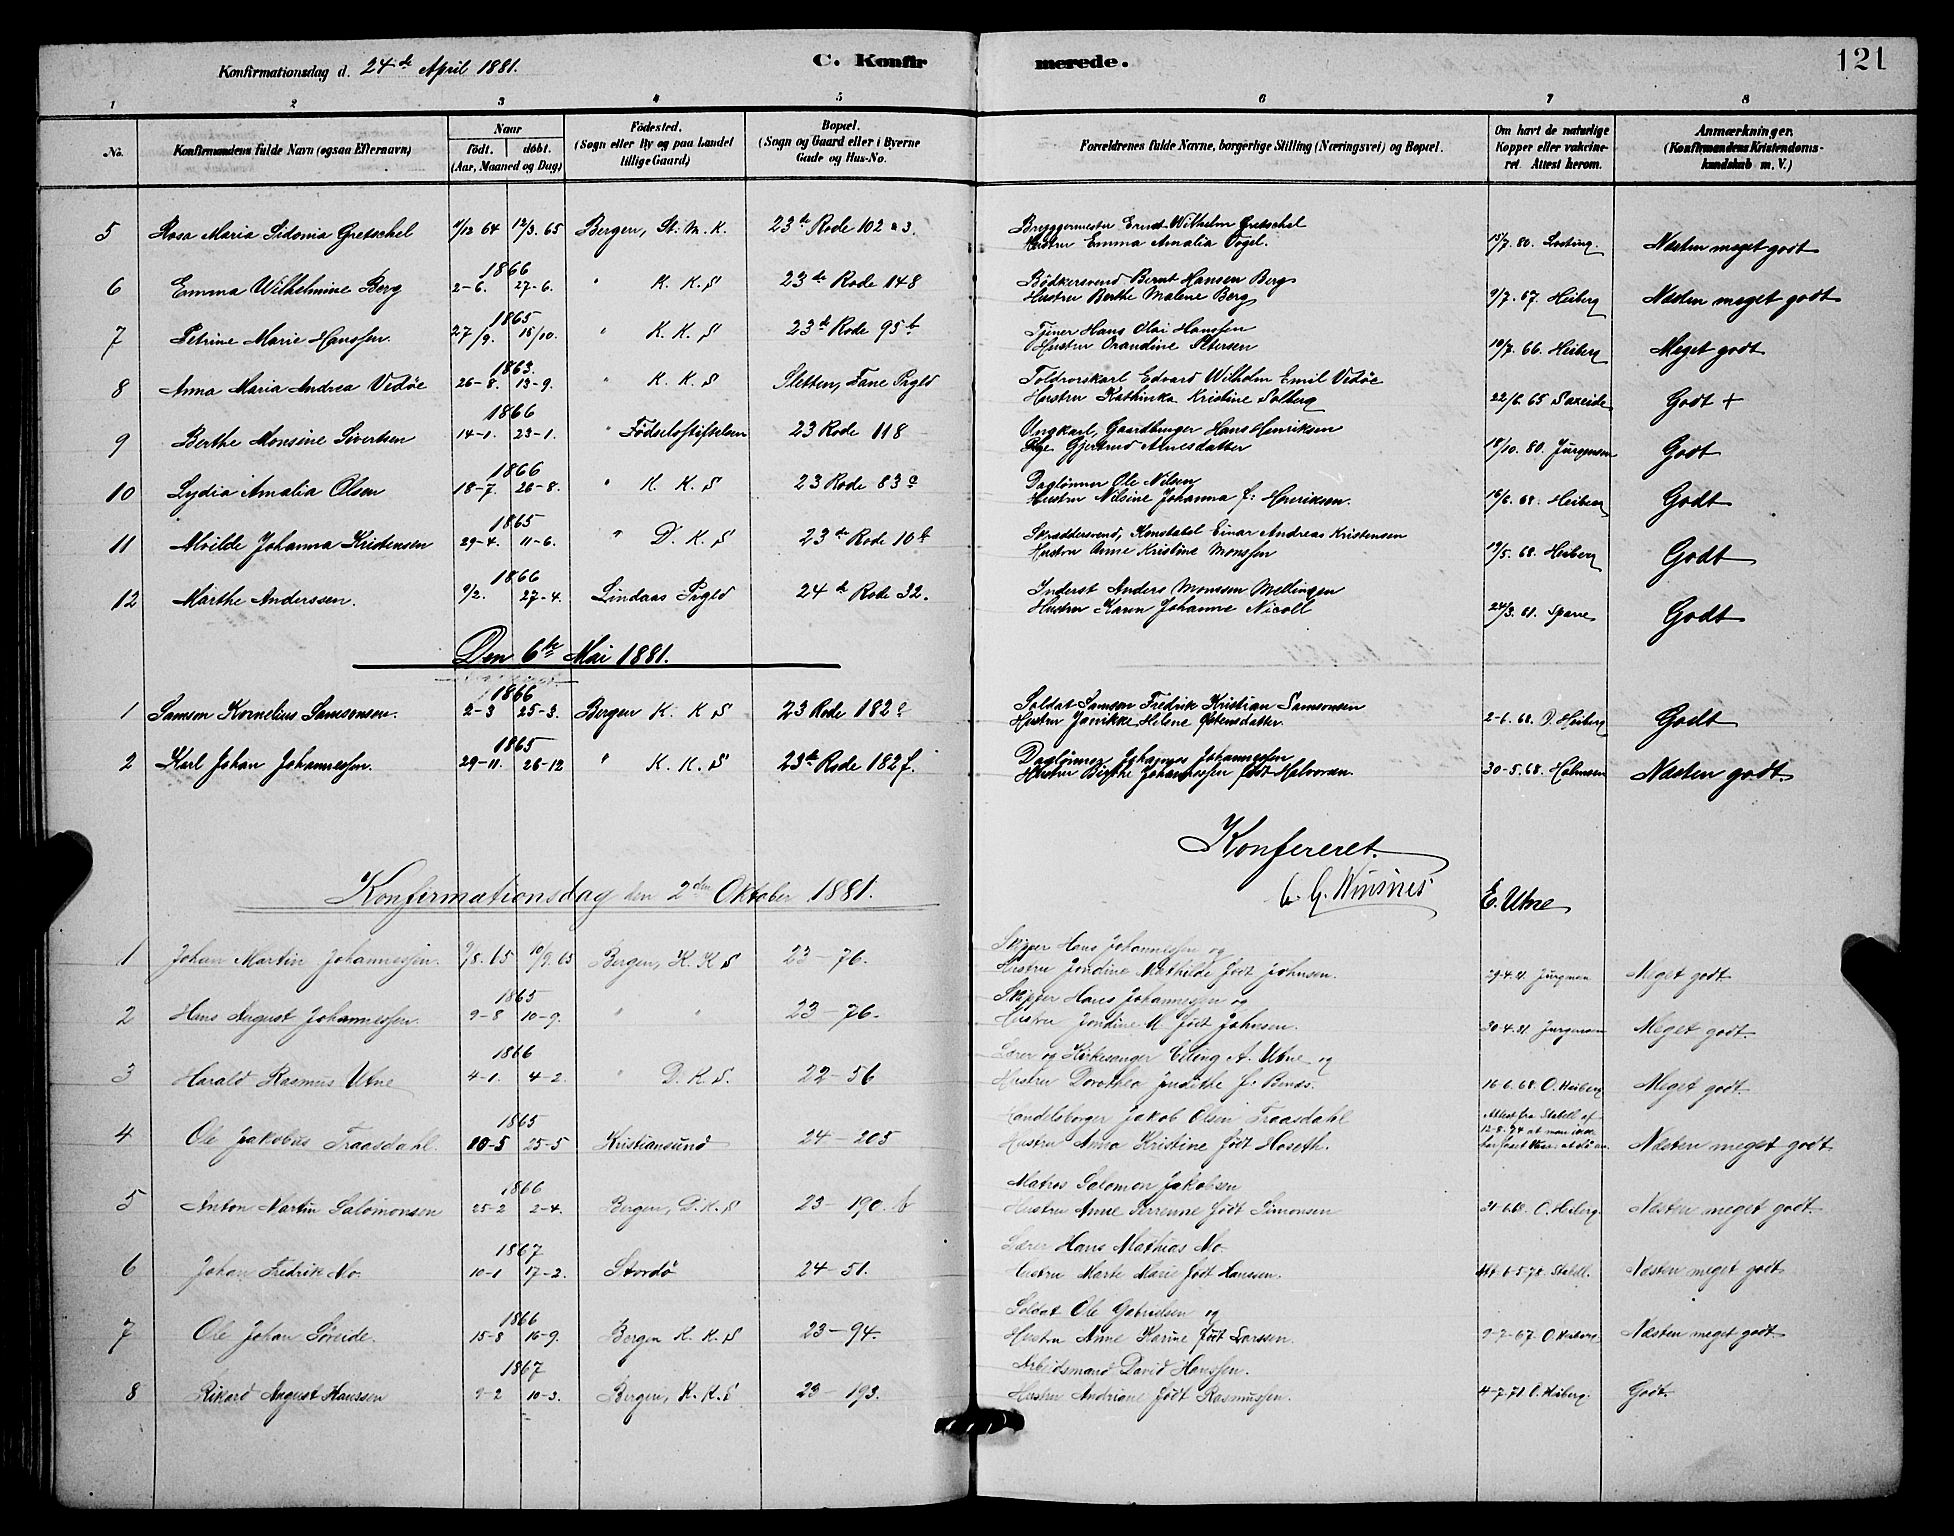 121
Konfirmationsdag d. 24de April 1881. C. Konfirmerede.
1 2 3 4 5 6 7 8
No. Konfirmandens fulde Navn (ogsaa Efternavn) Naar født. døbt. (Aar, Maaned og Dag) Fødested. (Sogn eller By og paa Landet tillige Gaard) Bopæl. (Sogn og Gaard eller i Byerne Gade og Hus-No. Forældrenes fulde Navne, borgerlige Stilling (Næringsvei) og Bopæl. Om havt de naturlige Kopper eller vakcineret. Attest herom. Anmærkninger. (Konfirmandens Kristendomskundskab m. V.)
5 Rosa Maria Sidonia Gretschel 1/12 64 12/3. 65 Bergen, St. M. K. 23de Rode 102 a 3. Bryggermester Ernst Wilhelm Gretschel
Hustru Emma Amalia Vogel. 15/7. 80. Næsten meget godt
6 Emma Wilhelmine Berg 1866 2-6. 27-6. " K. K. S 23de Rode 148 Bødkersvend Bernt Hansen Berg
Hustru Berthe Malene Berg 9/7. 67. Heiberg Næsten meget godt
7 Petrine Marie Hanssen. 1865 27/9. 15/10. " K. K. S 23de Rode 95 b Tjener Hans Olai Hanssen
Hustru Orandine Petersen 10/7. 66. Heiberg Meget godt
8 Anna Maria Andrea Vedøe 1863. 26-8. 13-9. " K. K. S Sletten, Fane Prgld Toldrorskarl Edvard Wilhelm Emil Vedøe
Hustru Kathinka Kristine Solberg 22/6. 65 Godt +
9 Berthe Monsine Sivertsen 1866 14-1. 23-1. " Fødselsstiftelsen 23 Rode 118 Ungkarl, Gaardbruger Hans Henriksen
Pige Gjertrud 18/10. 80. Jurgensen Godt
10 Lydia Amalia Olsen 1866 18-7. 26-8. " K. K. S 23 Rode 83 Daglønner Ole Nilsen
Hustru Nilsine Johanna f: Henriksen. 16/6. 68. Heiberg Godt
11 Mvilde Johanna Kristensen 1865 29-4. 11-6. " D. K. S 23de Rode 10 b Skræddersvend, Konstabel Einar Andreas Kristensen
Hustru Anne Kristine Monssen 19/5. 68. Heiberg Godt
12 Marthe Anderssen. 1866 9/2. 27-4. Lindaas Prgld 24de Rode 32. Inderst Anders Monssen Mellingen
Hustru Karen Johanne Nicoll 24/3. 81. Sparre Godt
Den 6te Mai 1881.
1 Samson Kornelius Samsonsen. 1866 2-3 25-3. Bergen K. K. S 23 Rode 182 Soldat Samson Fredrik Kristian Samsonsen
Hustru Janikke Helene Østensdatter 2-6. 68. O. Heiberg Godt
2 Karl Johan Johannessen. 1865 29-11. 26-12 " K. K. S 23de Rode 182 f. Daglønner Johannes Johannessen
Hustru Birthe Johannessen født Halvorsen. 30-5. 68. Holmsen Næsten godt.
Konfereret.
C. G. Winsnes E. Utne
Konfirmationsdag den 2den Oktober 1881.
1 Johan Martin Johannessen. 9/8. 65 10/9. 65 Bergen, K. K S 23-76. Skipper Hans Johannessen og
Hustru Jondine Mathilde født Johnsen. 29-4. 81 Jurgensen Meget godt.
2 Hans August Johannessen. 1865 9-8 10-9. " " 23-76. Skipper Hans Johannessen og
Hustru Jondine M. født Johnsen. 30-4. 81 Jurgensen Meget godt.
3 Harald Rasmus Utne 1866 4-1. 4-2. " D. K. S. 22-56 Lærer og Kirkesanger Elling A. Utne og
Hustru Dorothea Judithe f: Bends. 16-6. 68. O. Heiberg Meget godt.
4 Ole Jakobus Fraasdahl. 1865 20-5 25-5 Kristiansund 24-205 Handelsborger Jakob Olsen Fraasdahl
Hustru Anna Kristine født Hoseth. Attest fra Stabell af 12-8. 74 at man ikke Næsten meget godt
5 Anton Martin Salomonsen 1866 25-2 2-4. Bergen, D. K. S 23-190. b Matros Salomon Jakobsen
Hustru Anne Serrenne født Simonsen O. Heiberg. Næsten meget godt.
6 Johan Fredrik Mo. 1867 10-1 17-2. Stordø 24-51. Lærer Hans Mathias Mo.
Hustru Marte Marie født Hanssen. Att. 6-5. 78. Stabell. Næsten meget godt.
7 Ole Johan Søreide. 1866 15-8 16-9. Bergen K. K. S 23-94. Soldat Ole Gabrielsen og
Hustru Anne Karine født Larssen. 9-2-67. O. Heiberg. Næsten meget godt
8 Rikard August Hanssen 1867 9-2 10-3. Bergen, K. K. S 23-193. Arbeidsmand David Hanssen.
Hustru Andriane født Rasmussen. 4-7. 71 O. Heiberg. Godt.